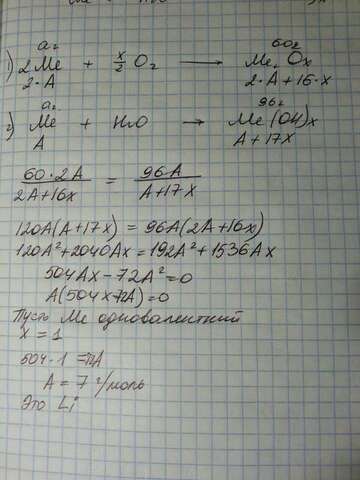 a г 60 г
1) 2Me + x/2 O₂ → Me₂Oₓ
2·A 2·A+16·x
a г 96 г
2) Me + H₂O → Me(OH)x
A A+17x
60·2A/2A+16x = 96A/A+17x
120A(A+17x) = 96A(2A+16x)
120A²+2040Ax=192A²+1536Ax
504Ax-72A²=0
A(504x-72A)=0
Пусть Me одновалентный
x = 1
504·1=72A
A=7 г/моль
Это Li